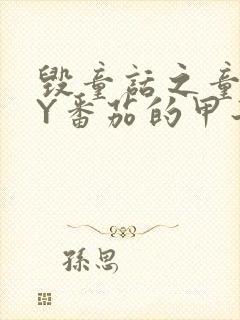 毁童话之童
Y番茄的甲
孫思